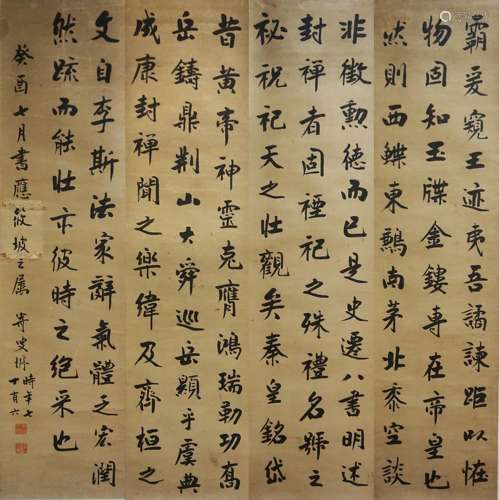 霸爰窺王迹夷吾譎諫距以怪
物固知玉牒金鏤專在帝皇也
然則西鰈東鶼南茅北黍空談
非徵勳德而已是史遷八書明述
封禪者固禋祀之殊禮名號之
祕祝祀天之壯觀矣秦皇銘岱
昔黃帝神靈克膺鴻瑞勒功喬
岳鑄鼎荆山大舜巡岳顯乎虞典
成康封禪聞之樂緯及齊桓之
文自李斯法家辭氣體乏宏潤
然疏而能壯亦彼時之絕采也
癸酉七月書應筱坡之屬 寄叟 時年七十有六